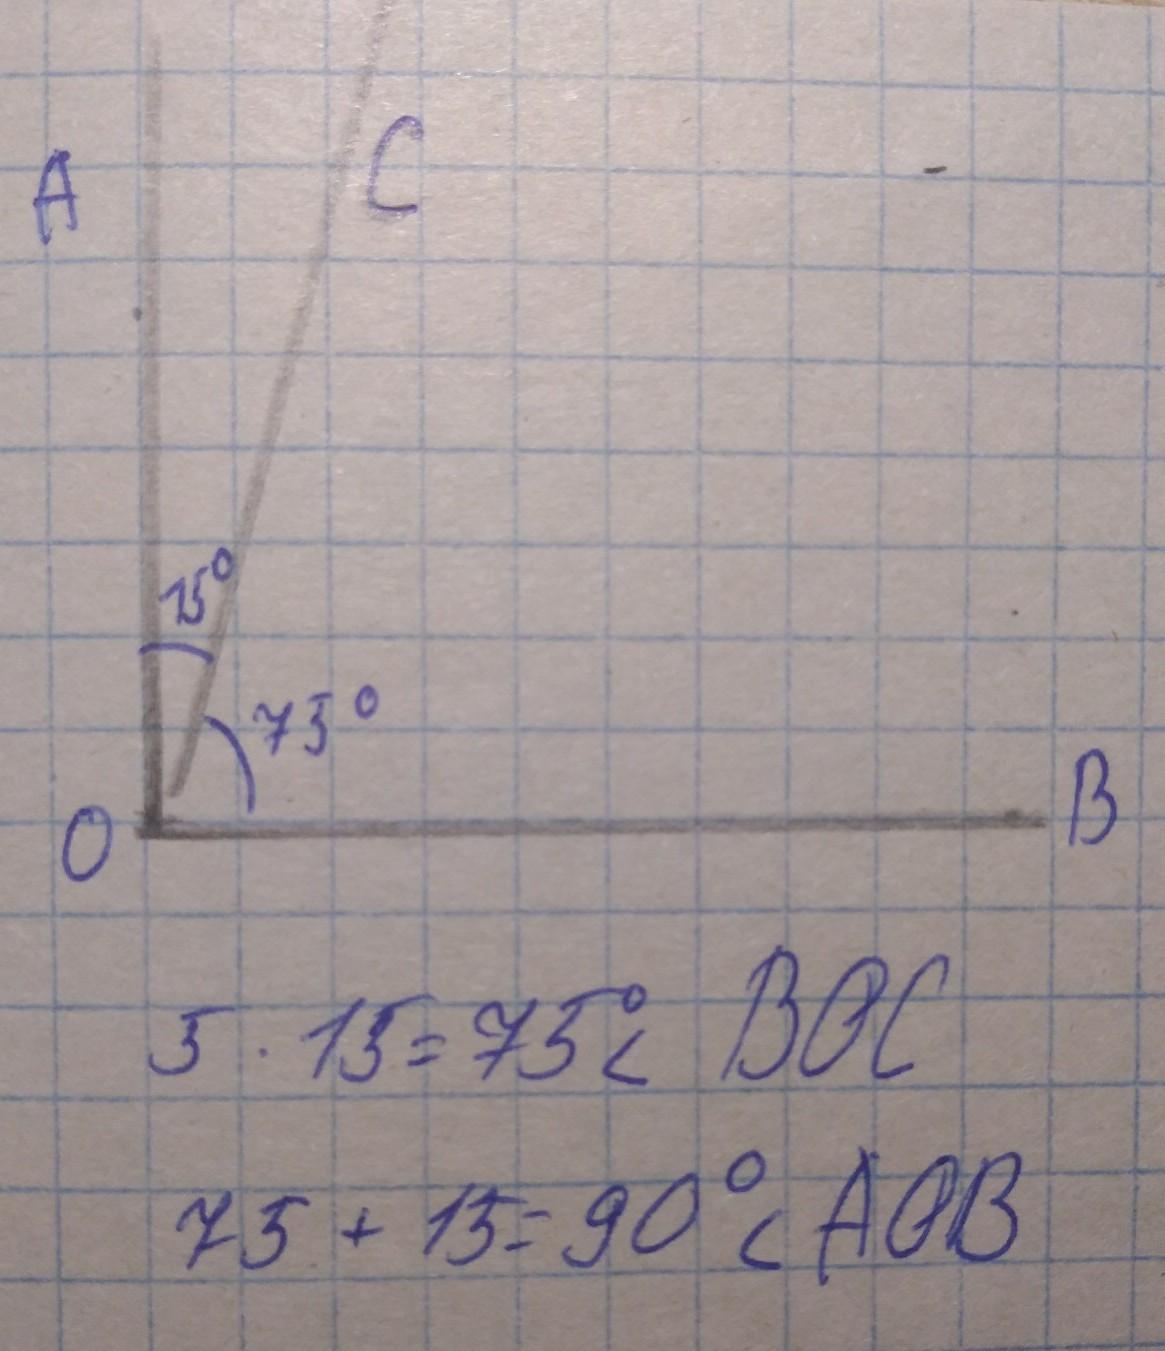 A
C
15°
75°
O
B
5 · 15 = 75° < BOC
75 + 15 = 90° < AOB